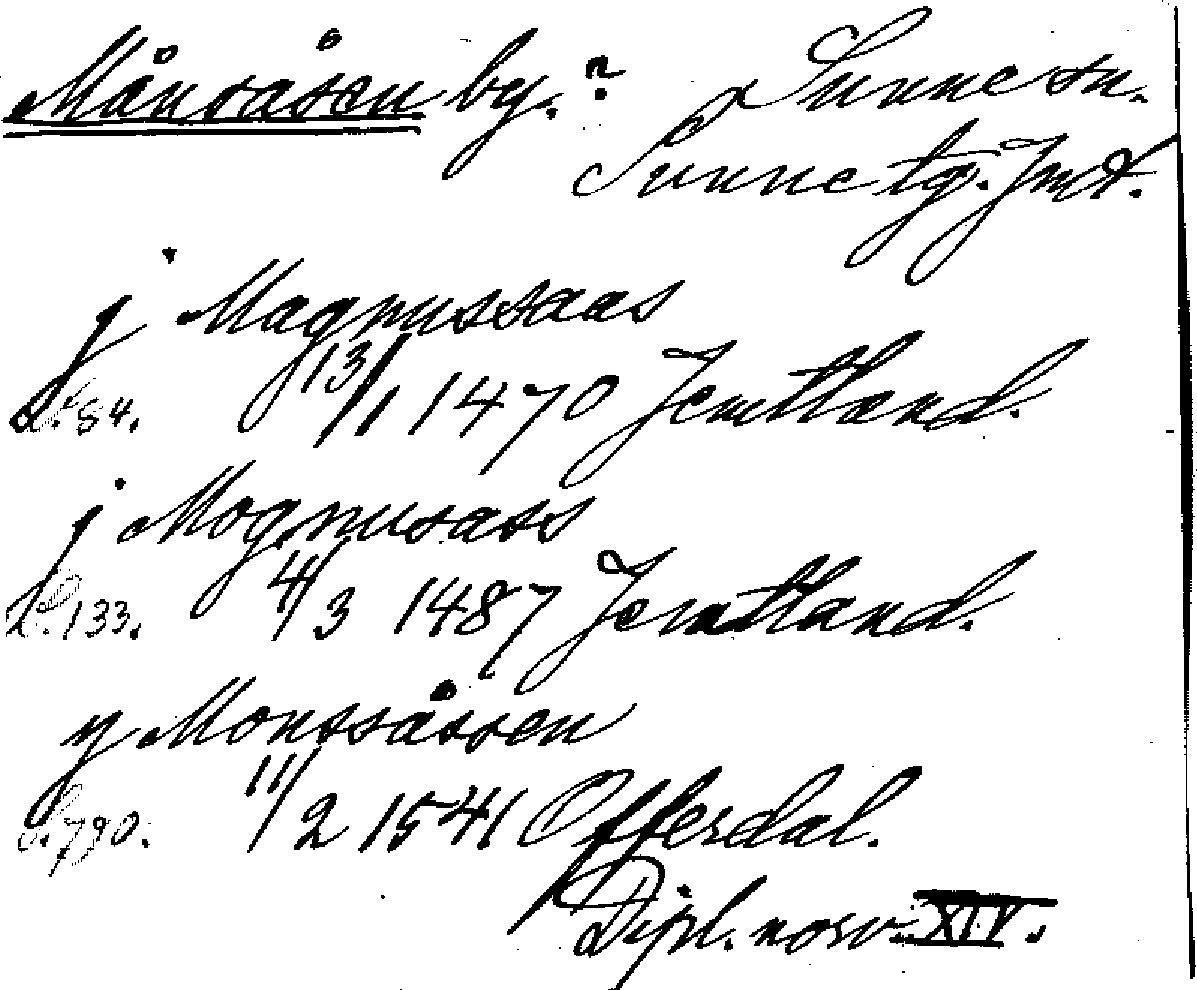 Månsåsen by.? Sunne sn.
Sunne tg. Jmt.
j Magnussaas
S. 84. 13/1 1470 Jemtland.
j Mognusass
S. 133. 4/3 1487 Jemtland.
y Monssåssen
S. 790. 11/2 1541 Offerdal.
Dipl. norv. XIV.